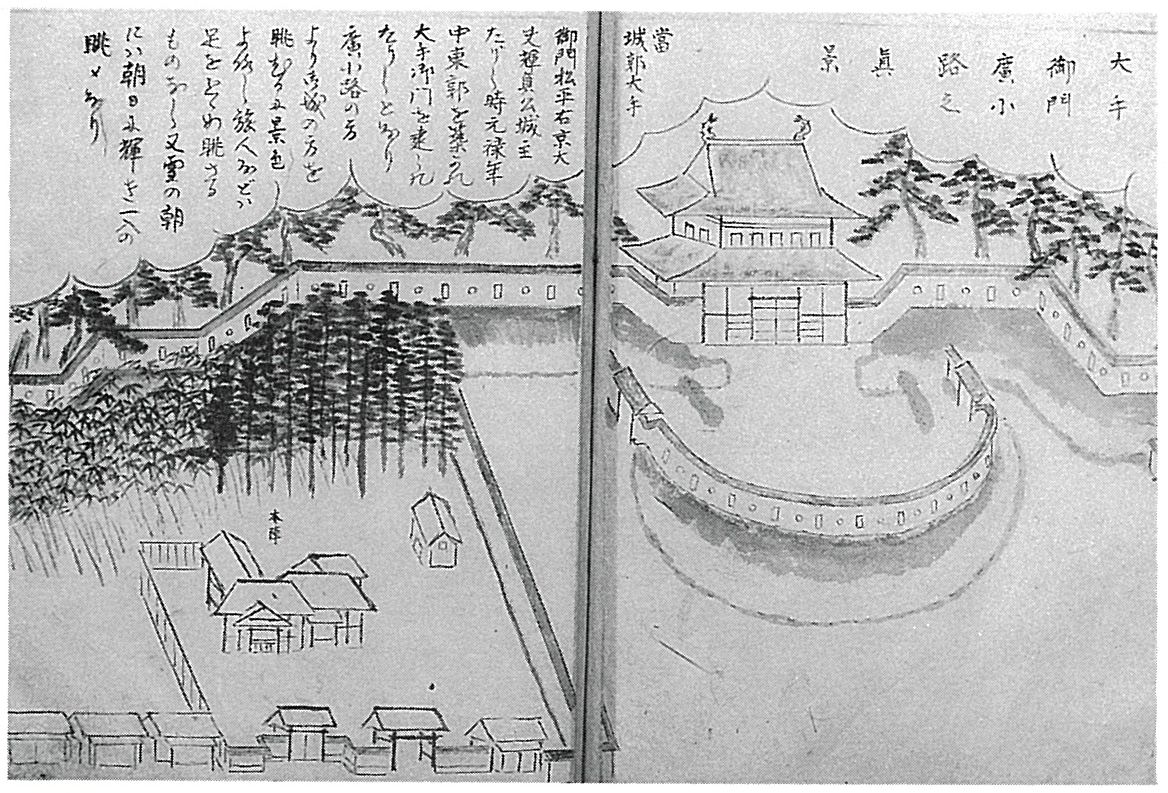 大手
御門
廣小
路之
眞
景
當
城郭大手
御門松平右京大
夫輝貞公城主
たりし時元禄年
中東郭を築かれ
大手御門を建られ
たりしとなり
廣小路の方
より御城の方を
眺むるに景色
旅人などハ
足をとゝめ眺さる
ものなし又雪の朝
にハ朝日に輝き一入の
眺めなり
本陣